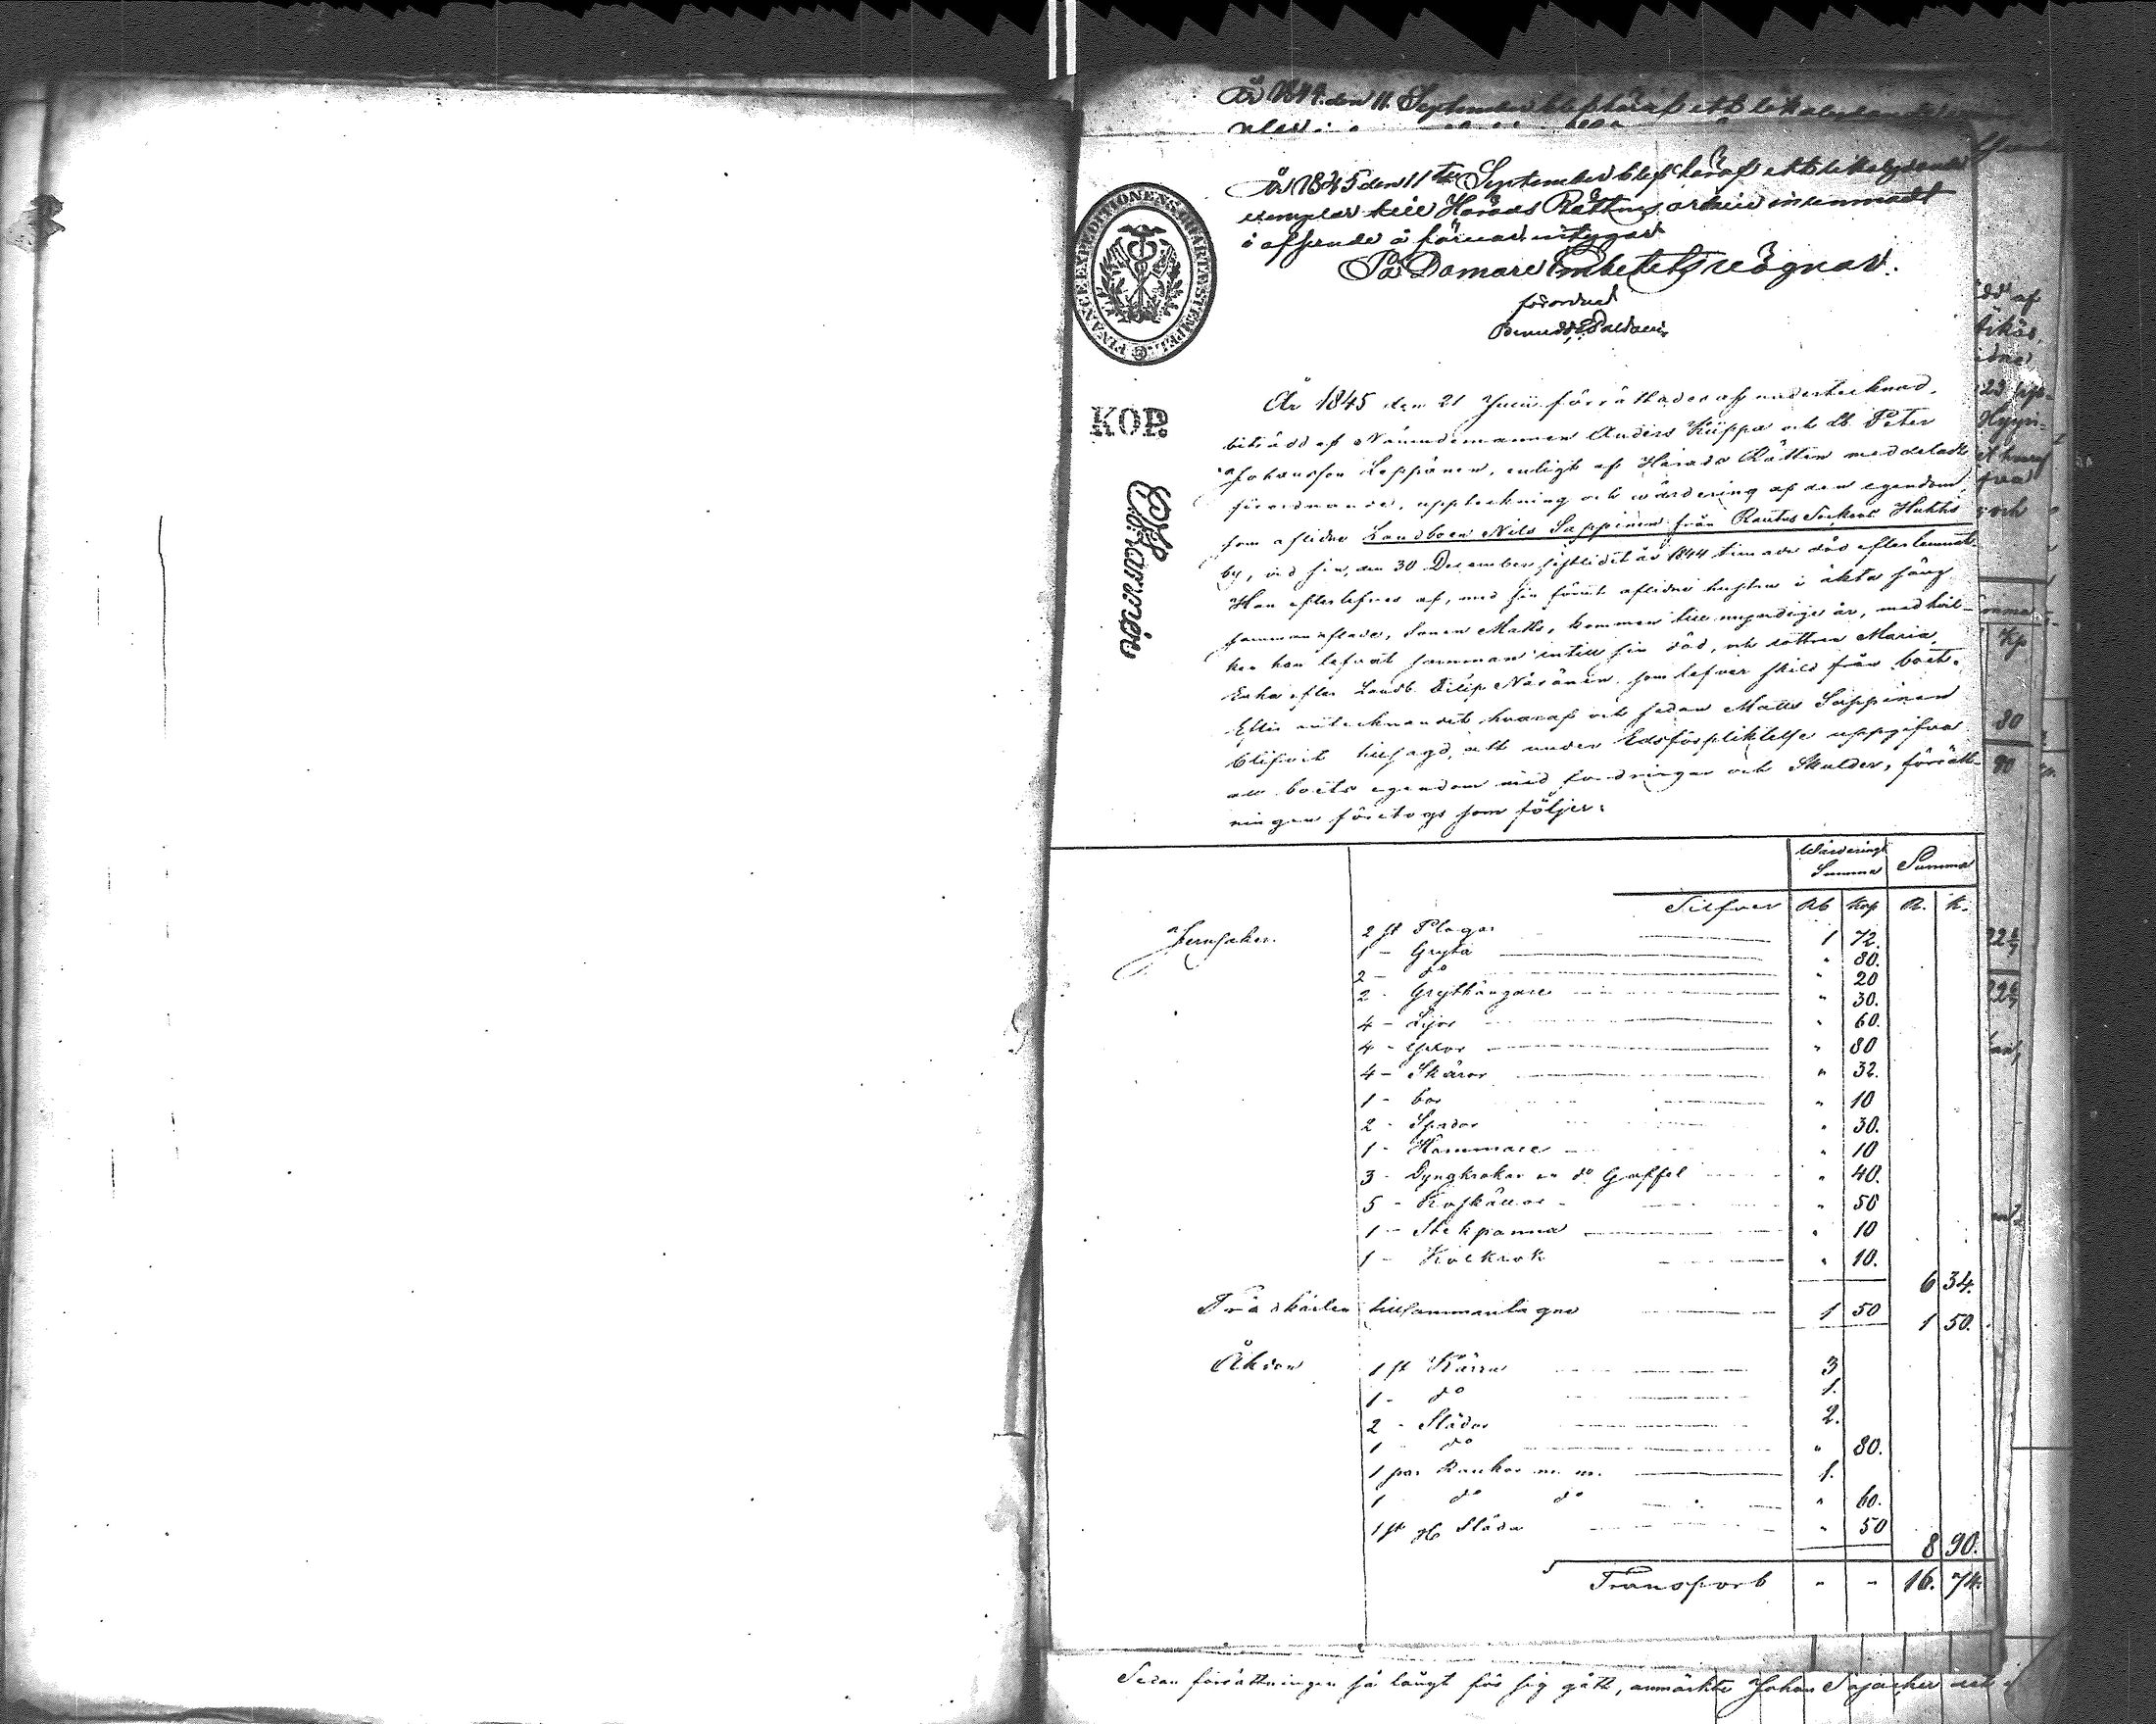 År 1844 den 11 September blef häraf ett likalydande
År 1845 den 11te September blef häraf ett likalydande
exemplar till Härads Rättens arkiv insinueradt
i afseende å förvar, intygar
På Domare Embetets vägnar.
förordnad
FINANCE EXPEDITIONENS CHARTÆ STEMPEL
KOP.
År 1845 den 21 Junii förrättades af undertecknad,
biträdd af Nämndemannen Anders Kiippa och db. Peter
Johansson Leppänen, enligt af Härads Rätten meddeladt
förordnande, uppteckning och värdering af den egendom,
som aflidne Landboen Nils Sappinen från Rautus Sockens Huhti
by, vid sin, den 30 December sistlidet år 1844 timade död efterlemnat.
Han efterlefves af, med sin förut aflidne hustru i äkta säng
sammanaflade, Sonen Matts, kommen till myndiga år, med hvil-
ken han lefvat samman intill sin död, och dottren Maria,
Enka efter Landb. Filip Näränen, som lefver skild från boet.
Efter antecknandet hvaraf och sedan Matts Sappinen
blifvit tillsagd, att under Edsförpliktelse uppgifva
all boets egendom med fordringar och Skulder, förrätt-
ningen företogs som följer:
Wärderings Summa Summa
Silfver Rb Kop R. K.
Jernsaker. 2 st Plogar 1 72.
1 - Gryta " 80.
2 - do " 20
2 - Grythängare " 30.
4 - Lijor " 60.
4 - Yxor " 80
4 - Skäror " 32.
1 - bor " 10
2 - Spador " 30.
1 - Hammare " 10
3 - Dyngkrokar en do Gaffel " 40.
5 - " 50
1 - Stekpanna " 10
1 - Kolkrok " 10.
6 34.
Trädkärlen tillsammantagne 1 50 1 50.
Åkdon 1 st Kärra 3
1 - do 1.
2 - Slädor 2.
1 do " 80.
1 par Rankor m. m. 1.
1 do do " 60.
1 st Släda " 50
8 90.
Transport " " 16. 74.
Sedan förrättningen så långt för sig gått, anmärkte Johan